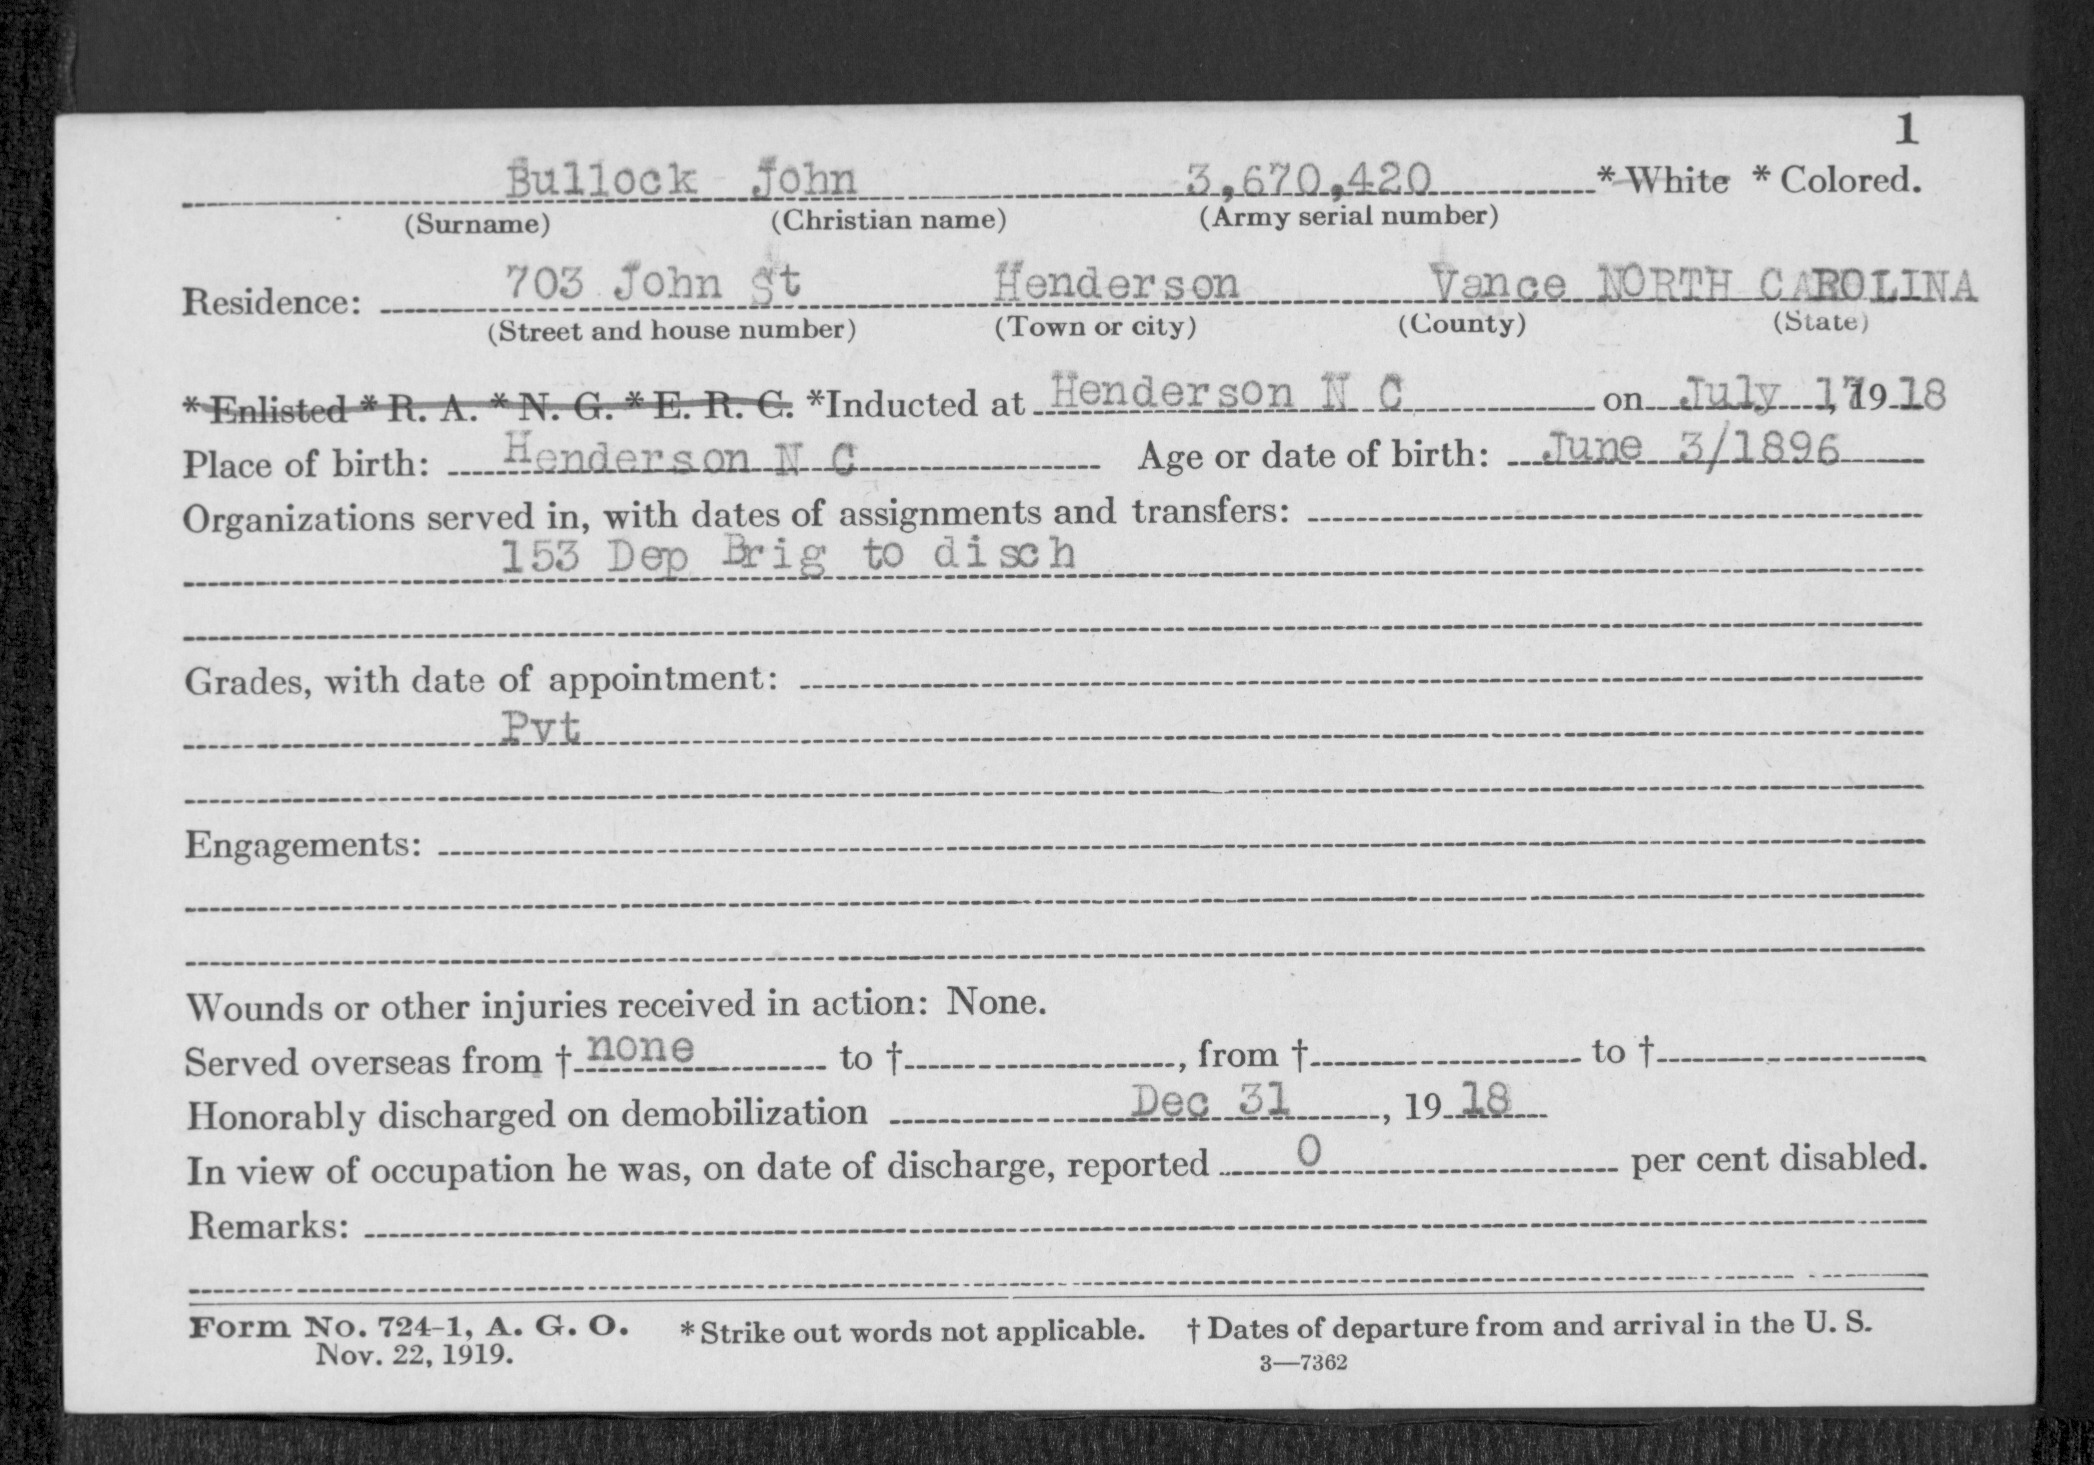 1
Bullock John 3,670,420 * White * Colored.
(Surname) (Christian name) (Army serial number)
703 John St Henderson Vance NORTH CAROLINA
Residence:
(Street and house number) (Town or city) (County) (State)
* Enlisted * R. A. * N. G. * E. R. C. *Inducted at Henderson N C on July 17, 19 18
Place of birth: Henderson N C Age or date of birth: June 3/1896
Organizations served in, with dates of assignments and transfers:
153 Dep Brig to disch
Grades, with date of appointment:
Pvt
Engagements:
Wounds or other injuries received in action: None.
Served overseas from † none to †, from † to †
Honorably discharged on demobilization Dec 31, 19 18
In view of occupation he was, on date of discharge, reported 0 per cent disabled.
Remarks:
Form No. 724-1, A. G. O. * Strike out words not applicable. † Dates of departure from and arrival in the U. S.
Nov. 22, 1919. 3—7362